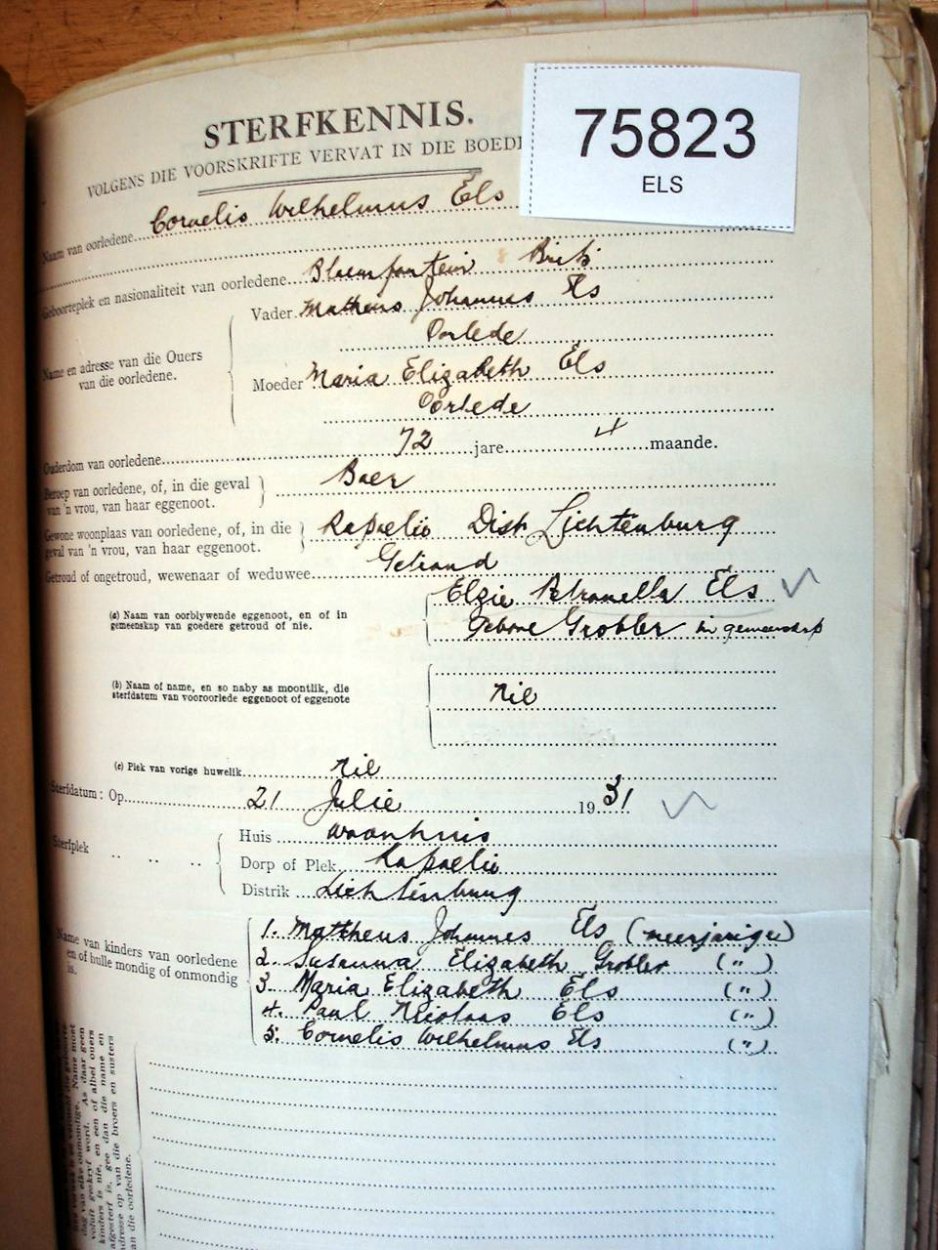 STERFKENNIS.
75823
ELS
VOLGENS DIE VOORSKRIFTE VERVAT IN DIE BOEDE
Naam van oorledene Cornelis Wilhelmus Els
Geboorteplek en nasionaliteit van oorledene Bloemfontein Brits
Name en adresse van die Ouers
van die oorledene.
Vader Matheus Johannes Els
Oorlede
Moeder Maria Elizabeth Els
Oorlede
Ouderdom van oorledene 72 jare 4 maande.
Beroep van oorledene, of, in die geval
van 'n vrou, van haar eggenoot.
Boer
Gewone woonplaas van oorledene, of, in die
geval van 'n vrou, van haar eggenoot.
Rapaelis Dist Lichtenburg
Getroud of ongetroud, wewenaar of weduwee Getroud
(a) Naam van oorblywende eggenoot, en of in
gemeenskap van goedere getroud of nie.
Elzie Petronella Els
Gebore Grobler in gemeenskap
(b) Naam of name, en so naby as moontlik, die
sterfdatum van vooroorlede eggenoot of eggenote
Nil
(c) Plek van vorige huwelik Nil
Sterfdatum: Op 21 Julie 1931
Sterfplek
Huis woonhuis
Dorp of Plek Rapaelis
Distrik Lichtenburg
Name van kinders van oorledene
en of hulle mondig of onmondig
is.
1. Mattheus Johannes Els (meerjarige)
2. Susanna Elizabeth Grobler (")
3. Maria Elizabeth Els (")
4. Paul Nicolaas Els (")
5. Cornelis Wilhelmus Els (")
dag van elke onmondige. Name moet
voluit geskryf word. As daar geen
kinders is nie, en een of albei ouers
afgesterf is, gee dan die name en
adresse op van die broers en susters
van die oorledene.